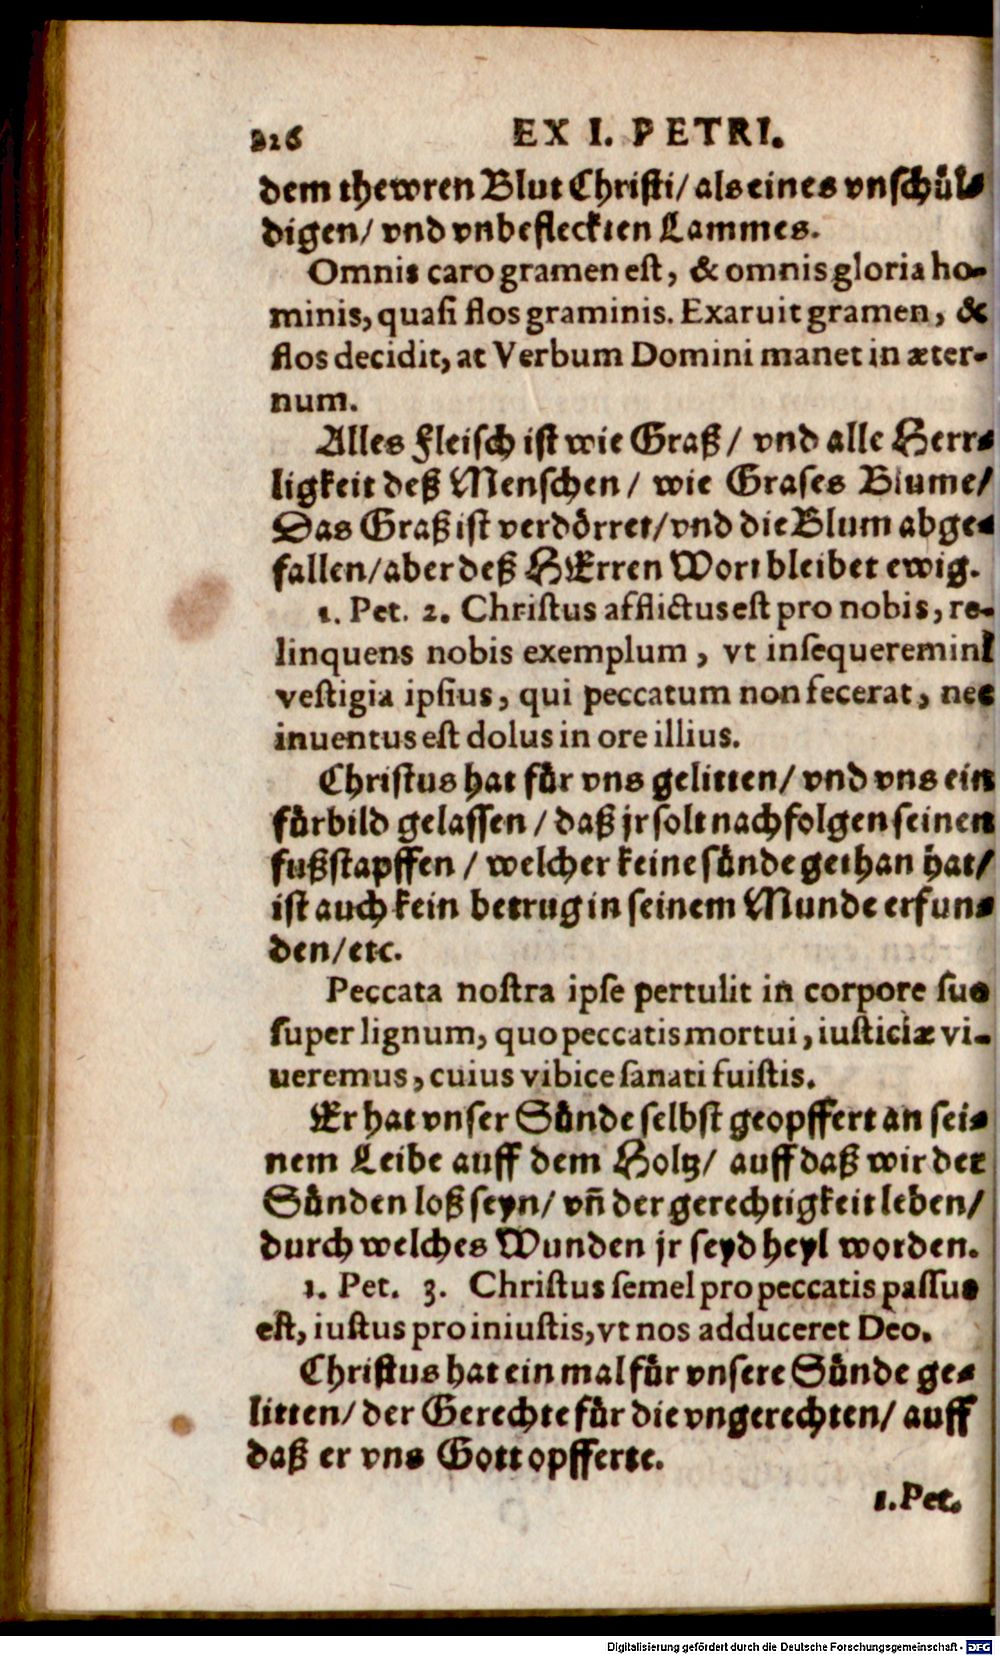 226 EX I. PETRI.
dem thewren Blut Christi/ als eines vnschül⸗
digen/ vnd vnbefleckten Lammes.
Omnis caro gramen est, & omnis gloria ho-
minis, quasi flos graminis. Exaruit gramen, &
flos decidit, at Verbum Domini manet in æter-
num.
Alles Fleisch ist wie Graß/ vnd alle Herr⸗
ligkeit deß Menschen/ wie Grases Blume/
Das Graß ist verdörret/ vnd die Blum abge⸗
fallen/ aber deß HErren Wort bleibet ewig.
1. Pet. 2. Christus afflictus est pro nobis, re-
linquens nobis exemplum, vt insequeremini
vestigia ipsius, qui peccatum non fecerat, nec
inuentus est dolus in ore illius.
Christus hat für vns gelitten/ vnd vns ein
fürbild gelassen/ daß jr solt nachfolgen seinen
fußstapffen/ welcher keine sünde gethan hat/
ist auch kein betrug in seinem Munde erfun⸗
den/ etc.
Peccata nostra ipse pertulit in corpore suo
super lignum, quo peccatis mortui, iusticiæ vi-
ueremus, cuius vibice sanati fuistis.
Er hat vnser Sünde selbst geopffert an sei⸗
nem Leibe auff dem Holtz/ auff daß wir der
Sünden loß seyn/ vñ der gerechtigkeit leben/
durch welches Wunden jr seyd heyl worden.
1. Pet. 3. Christus semel pro peccatis passus
est, iustus pro iniustis, vt nos adduceret Deo.
Christus hat ein mal für vnsere Sünde ge⸗
litten/ der Gerechte für die vngerechten/ auff
daß er vns Gott opfferte.
1. Pet.
Digitalisierung gefördert durch die Deutsche Forschungsgemeinschaft - DFG